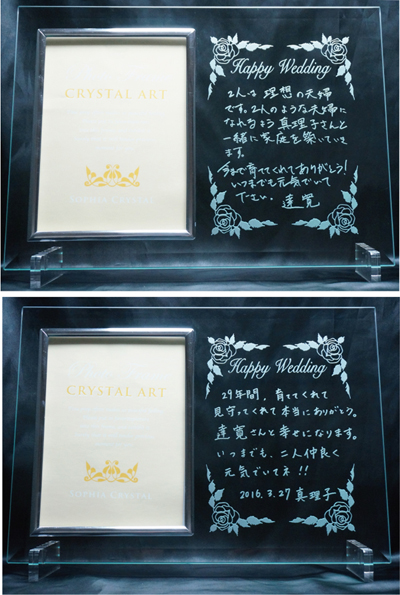 CRYSTAL ART
SOPHIA CRYSTAL
Happy Wedding
2人は理想の夫婦
です。2人のような夫婦に
なれるよう真理子さんと
一緒に家庭を築いていき
ます。
今まで育ててくれてありがとう!
いつまでも元気でいて
下さい。達寛
CRYSTAL ART
SOPHIA CRYSTAL
Happy Wedding
29年間、育ててくれて
見守ってくれて本当にありがとう。
達寛さんと幸せになります。
いつまでも、二人仲良く
元気でいてネ!!
2016.3.27 真理子